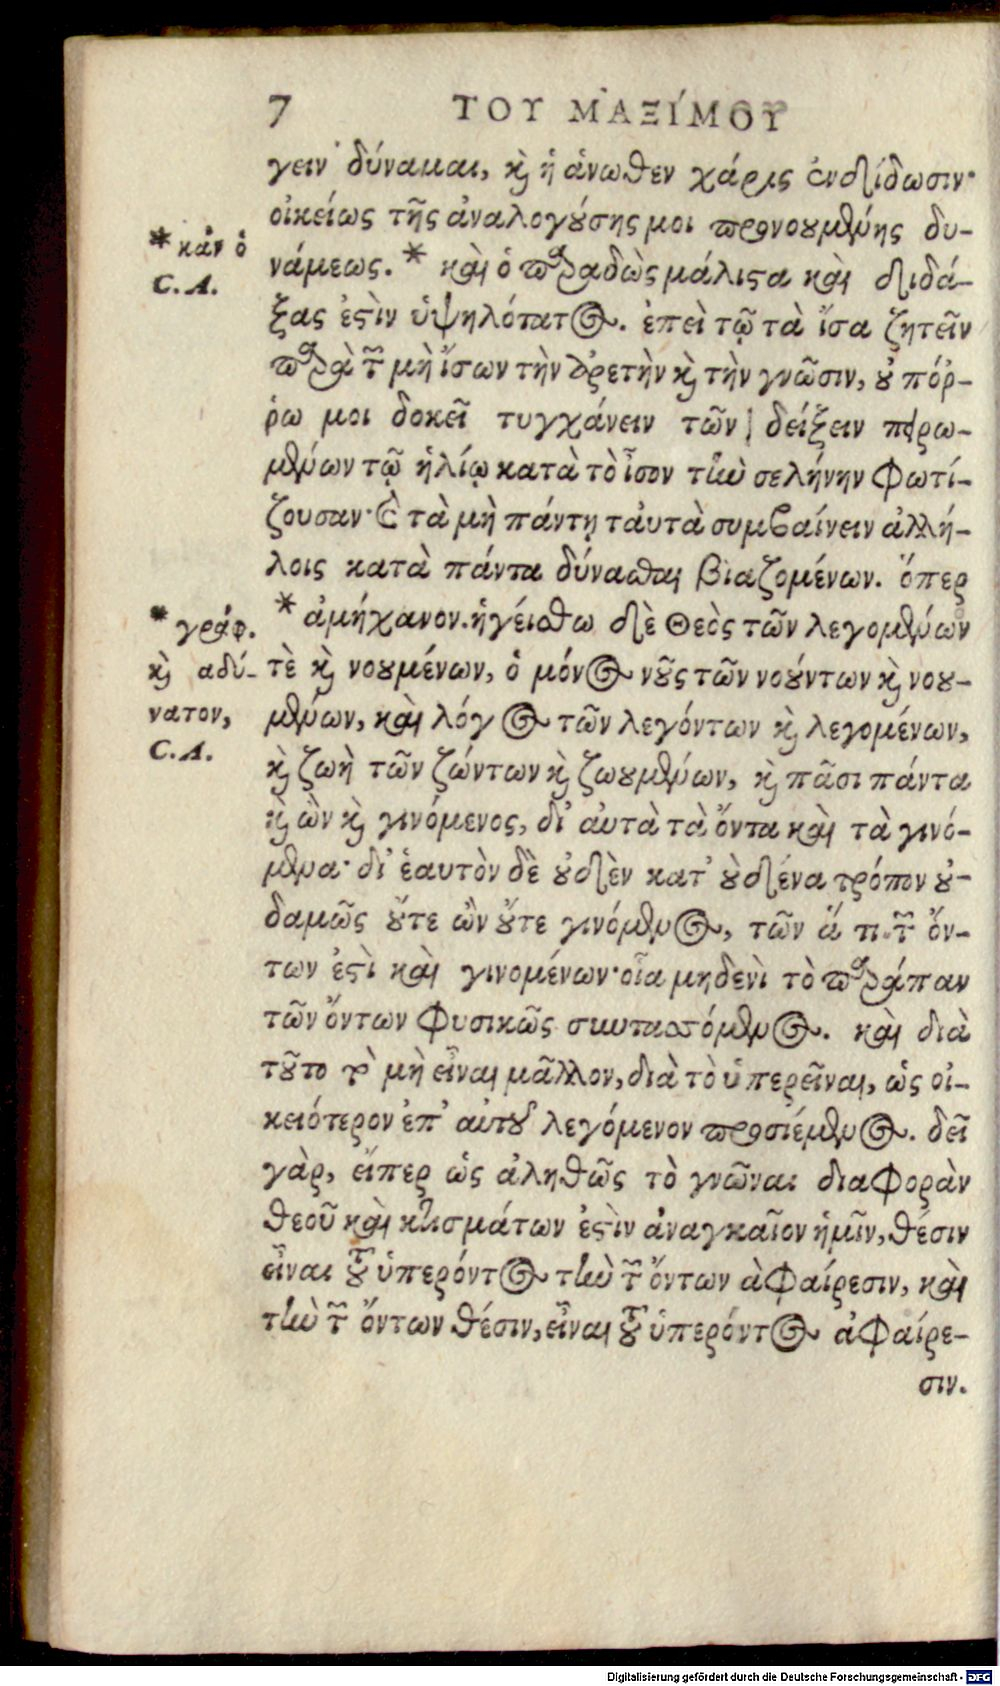 7 ΤΟΥ ΜΑΞΙΜΟΥ
γειν δύναμαι, καὶ ἡ ἄνωθεν χάρις ἐνδίδωσιν·
οἰκείως τῆς ἀναλογούσης μοι προνουμένης δυ-
νάμεως. * καὶ ὁ παραδὼς μάλιστα καὶ διδά-
ξας ἐστὶν ὑψηλότατος. ἐπεὶ τῷ τὰ ἴσα ζητεῖν
παρὰ τῶν μὴ ἴσων τὴν ἀρετὴν καὶ τὴν γνῶσιν, οὐ πόρ-
ρω μοι δοκεῖ τυγχάνειν τῶν δείξειν πειρω-
μένων τῷ ἡλίῳ κατὰ τὸ ἶσον τὴν σελήνην φωτί-
ζουσαν· καὶ τὰ μὴ πάντη ταὐτὰ συμβαίνειν ἀλλή-
λοις κατὰ πάντα δύνασθαι βιαζομένων. ὅπερ
* ἀμήχανον. ἡγείσθω δὲ Θεὸς τῶν λεγομένων
τὲ καὶ νουμένων, ὁ μόνος νοῦς τῶν νούντων καὶ νου-
μένων, καὶ λόγος τῶν λεγόντων καὶ λεγομένων,
καὶ ζωὴ τῶν ζώντων καὶ ζωουμένων, καὶ πᾶσι πάντα
καὶ ὢν καὶ γινόμενος, δι' αὐτὰ τὰ ὄντα καὶ τὰ γινό-
μενα· δι' ἑαυτὸν δὲ οὐδὲν κατ' οὐδένα τρόπον οὐ-
δαμῶς οὔτε ὢν οὔτε γινόμενος, τῶν ἅ τι τῶν ὄν-
των ἐστὶ καὶ γινομένων· οἷα μηδενὶ τὸ παράπαν
τῶν ὄντων φυσικῶς συντασσόμενος. καὶ διὰ
τοῦτο τὸ μὴ εἶναι μᾶλλον, διὰ τὸ ὑπερεῖναι, ὡς οἰ-
κειότερον ἐπ' αὐτοῦ λεγόμενον προσιέμενος. δεῖ
γὰρ, εἴπερ ὡς ἀληθῶς τὸ γνῶναι διαφορὰν
θεοῦ καὶ κτισμάτων ἐστὶν ἀναγκαῖον ἡμῖν, θέσιν
εἶναι τοῦ ὑπερόντος τὴν τῶν ὄντων ἀφαίρεσιν, καὶ
τὴν τῶν ὄντων θέσιν, εἶναι τοῦ ὑπερόντος ἀφαίρε-
σιν.
* κἂν ὁ
C. A.
* γράφ.
καὶ αδύ-
νατον,
C. A.
Digitalisierung gefördert durch die Deutsche Forschungsgemeinschaft - DFG